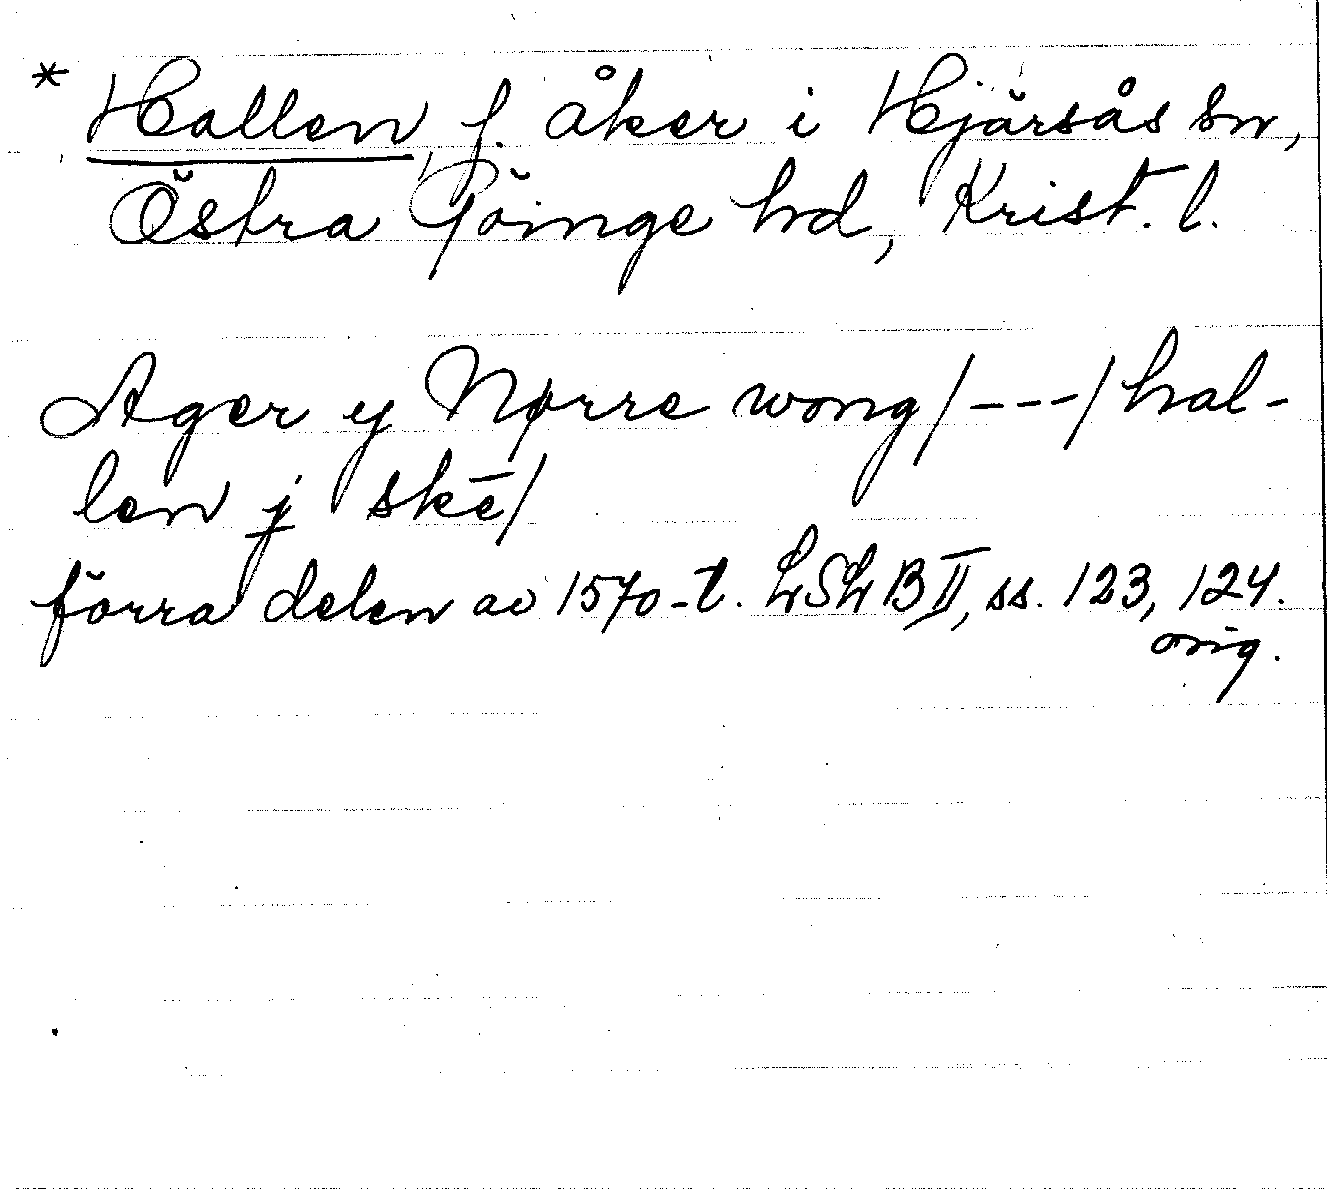 * Hallen, f. åker i Hjärsås sn,
Östra Göinge hd, Krist. l.
Ager y Nørre wong/---/hal-
len j skē/
förra delen av 1570-t. LSLB II, ss. 123, 124.
orig.